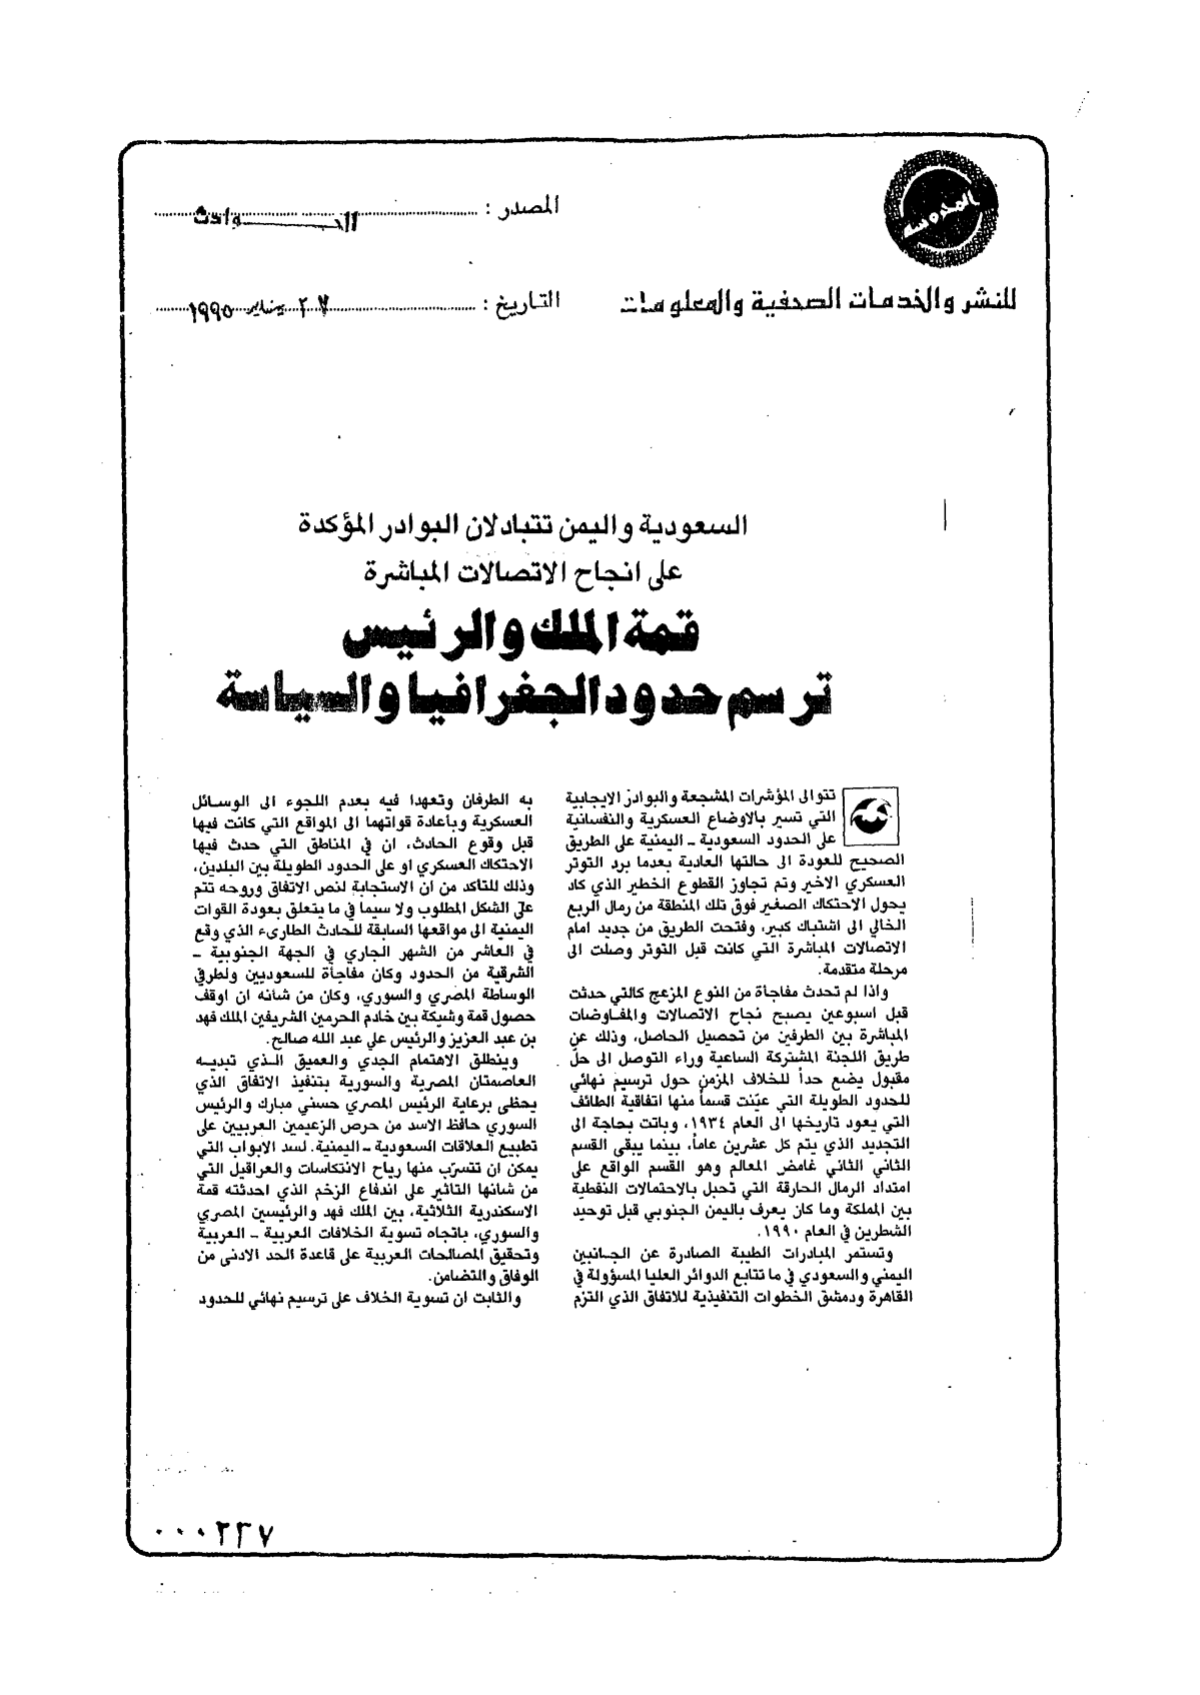 المدونة
المصدر : الحـــوادث
للنشر والخدمات الصحفية والمعلومات
التاريخ : ٢٠٧ يناير ١٩٩٥
السعودية واليمن تتبادلان البوادر المؤكدة
على انجاح الاتصالات المباشرة
قمة الملك والرئيس
ترسم حدود الجغرافيا والسياسة
تتوالى المؤشرات المشجعة والبوادر الايجابية
التي تسير بالاوضاع العسكرية والنفسانية
على الحدود السعودية ــ اليمنية على الطريق
الصحيح للعودة الى حالتها العادية بعدما برد التوتر
العسكري الاخير وتم تجاوز القطوع الخطير الذي كاد
يحول الاحتكاك الصغير فوق تلك المنطقة من رمال الربع
الخالي الى اشتباك كبير، وفتحت الطريق من جديد امام
الاتصالات المباشرة التي كانت قبل التوتر وصلت الى
مرحلة متقدمة.
واذا لم تحدث مفاجأة من النوع المزعج كالتي حدثت
قبل اسبوعين يصبح نجاح الاتصالات والمفاوضات
المباشرة بين الطرفين من تحصيل الحاصل، وذلك عن
طريق اللجنة المشتركة الساعية وراء التوصل الى حلّ
مقبول يضع حداً للخلاف المزمن حول ترسيم نهائي
للحدود الطويلة التي عيّنت قسماً منها اتفاقية الطائف
التي يعود تاريخها الى العام ١٩٣٤، وباتت بحاجة الى
التجديد الذي يتم كل عشرين عاماً، بينما يبقى القسم
الثاني الثاني غامض المعالم وهو القسم الواقع على
امتداد الرمال الحارقة التي تحبل بالاحتمالات النفطية
بين المملكة وما كان يعرف باليمن الجنوبي قبل توحيد
الشطرين في العام ١٩٩٠.
وتستمر المبادرات الطيبة الصادرة عن الجـانبين
اليمني والسعودي في ما تتابع الدوائر العليا المسؤولة في
القاهرة ودمشق الخطوات التنفيذية للاتفاق الذي التزم
به الطرفان وتعهدا فيه بعدم اللجوء الى الوسـائل
العسكرية وبإعادة قواتهما الى المواقع التي كانت فيها
قبل وقوع الحادث، ان في المناطق التي حدث فيها
الاحتكاك العسكري او على الحدود الطويلة بين البلدين،
وذلك للتأكد من ان الاستجابة لنص الاتفاق وروحه تتم
على الشكل المطلوب ولا سيما في ما يتعلق بعودة القوات
اليمنية الى مواقعها السابقة للحادث الطارىء الذي وقع
في العاشر من الشهر الجاري في الجهة الجنوبية ــ
الشرقية من الحدود وكان مفاجأة للسعوديين ولطرفي
الوساطة المصري والسوري، وكان من شانه ان اوقف
حصول قمة وشيكة بين خادم الحرمين الشريفين الملك فهد
بن عبد العزيز والرئيس علي عبد الله صالح.
وينطلق الاهتمام الجدي والعميق الـذي تبديـه
العاصمتان المصرية والسورية بتنفيذ الاتفاق الذي
يحظى برعاية الرئيس المصري حسني مبارك والرئيس
السوري حافظ الاسد من حرص الزعيمين العربيين على
تطبيع العلاقات السعودية ــ اليمنية. لسد الابواب التي
يمكن ان تتسرّب منها رياح الانتكاسات والعراقيل التي
من شانها التاثير على اندفاع الزخم الذي احدثته قمة
الاسكندرية الثلاثية، بين الملك فهد والرئيسين المصري
والسوري، باتجاه تسوية الخلافات العربية ــ العربية
وتحقيق المصالحات العربية على قاعدة الحد الادنى من
الوفاق والتضامن.
والثابت ان تسوية الخلاف على ترسيم نهائي للحدود
٠٠٠٢٣٧